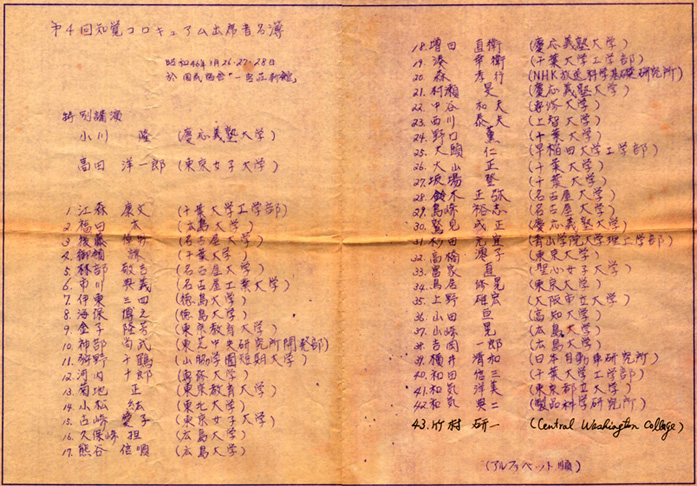 第4回知覚コロキュアム出席者名簿
昭和46年3月26・27・28日
於 国民宿舎"一宮荘新館"
特別講演
小川 隆 (慶応義塾大学)
高田 洋一郎 (東京女子大学)
1. 江森 康文 (千葉大学工学部)
2. 福田 (広島大学)
3. 後藤 倬男 (名古屋大学)
4. 御領 謙 (千葉大学)
5. 林部 敬吉 (名古屋大学)
6. 市川 典義 (名古屋工業大学)
7. 伊東 三四 (徳島大学)
8. 海保 博之 (徳島大学)
9. 金子 隆芳 (東京教育大学)
10. 柿部 尚武 (東芝中央研究所開発部)
11. 狩野 千鶴 (山脇学園短期大学)
12. 河内 十郎 (専修大学)
13. 菊地 正 (東京教育大学)
14. 小松 紘 (東北大学)
15. 古崎 愛子 (東京女子大学)
16. 久保崎 担 (広島大学)
17. 熊谷 信順 (広島大学)
18. 増田 直衛 (慶応義塾大学)
19. 湊 幸衛 (千葉大学工学部)
20. 森 孝行 (NHK放送科学基礎研究所)
21. 村瀬 旻 (慶応義塾大学)
22. 中谷 和夫 (専修大学)
23. 西川 泰夫 (上智大学)
24. 野口 薫 (千葉大学)
25. 大頭 仁 (早稲田大学工学部)
26. 大山 正 (千葉大学)
27. 坂場 登 (千葉大学)
28. 鈴木 正弥 (名古屋大学)
29. 島崎 裕志 (名古屋大学)
30. 鷲見 成正 (慶応義塾大学)
31. 杉田 元宜 (青山学院大学理工学部)
32. 高橋 澪子 (東京大学)
33. 富家 直 (聖心女子大学)
34. 鳥居 修晃 (東京大学)
35. 上野 雄宏 (大阪市立大学)
36. 山田 亘 (高知大学)
37. 山崎 晃 (広島大学)
38. 吉岡 一郎 (広島大学)
39. 横井 清和 (日本自動車研究所)
40. 和田 信三 (千葉大学工学部)
41. 和気 洋美 (東京都立大学)
42. 和気 典二 (製品科学研究所)
43. 竹村 研一 (Central Washington College)
(アルファベット順)